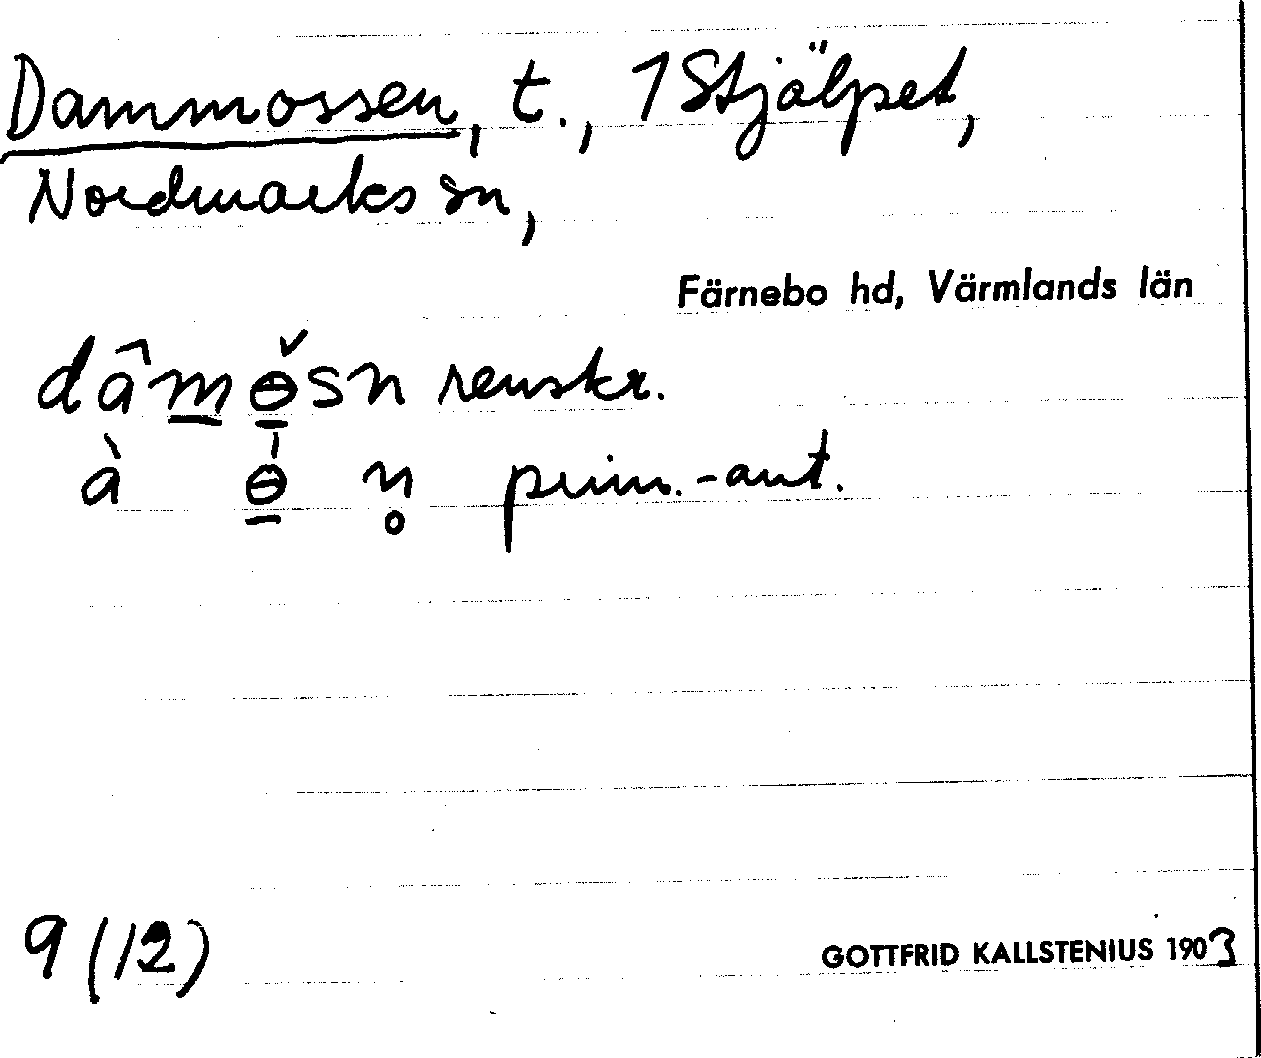 Dammossen, t., 1 Stjälpet,
Nordmarks sn,
Färnebo hd, Värmlands län
dâm̲ɵ̲̌sn renskr.
à ɵ̲̍ n̥ prim.-ant.
9 (12)
GOTTFRID KALLSTENIUS 1903